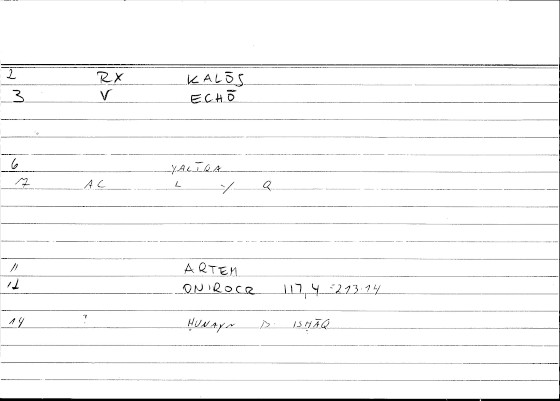 2 RX KALŌS
3 V ECHŌ
6
17 AC L Y Q
11 ARTEM
12 ONIROCR 117,4 = 213.14
14 ? ḤUNAYN B. ISḤĀQ